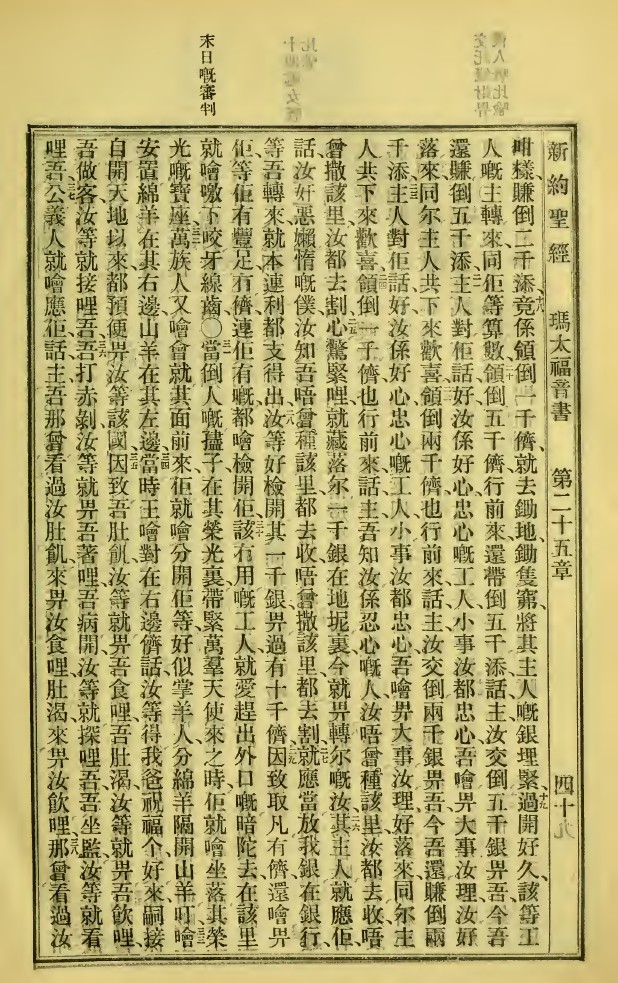 末日嘅審判
新約聖經 瑪太福音書 第二十五章 四十九
咁樣賺倒二千添、十八竟係領倒一千儕、就去鋤地、鋤隻窟、將其主人嘅銀埋緊、十九過開好久、該等工
人嘅主轉來、同佢等算數、二十領倒五千儕行前來、還帶倒五千添、話、主、汝交倒五千銀畀吾、今吾
還賺倒五千添、主人對佢話、好、汝係好心忠心嘅工人、小事汝都忠心、吾噲畀大事汝理、汝好
落來同尔主人共下來歡喜、領倒兩千儕也行前來話、主、汝交倒兩千銀畀吾、今吾還賺倒兩
千添、主人對佢話、好、汝係好心忠心嘅工人、小事汝都忠心、吾噲畀大事汝理、好落來同尔主
人共下來歡喜、領倒一千儕也行前來話、主、吾知汝係忍心嘅人、汝唔曾種該里、汝都去收、唔
曾撒該里、汝都去割、心驚緊哩、就藏落尔一千銀在地坭裏、今就畀轉尔嘅汝、其主人就應佢
話、汝奸惡嬾惰嘅僕、汝知吾唔曾種該里都去收、唔曾撒該里都去割、就應當放我銀在銀行、
等吾轉來、就本連利都支得出、汝等好檢開其一千銀、畀過有十千儕、因致取凡有儕、還噲畀
佢、等佢有豐足、冇儕、連佢有嘅都噲檢開佢、該冇用嘅工人、就愛趕出外口嘅暗陀去、在該里
就噲噭下咬牙線齒〇當倒人嘅孻子、在其榮光裏、帶緊萬羣天使來之時、佢就噲坐落其榮
光嘅寶座、萬族人又噲會就其面前來、佢就噲分開佢等、好似掌羊人分綿羊隔開山羊、叮噲
安置綿羊在其右邊、山羊在其左邊、當時王噲對在右邊儕話、汝等得我爸祝福个好來嗣接
自開天地以來都預便畀汝等該國、因致吾肚飢、汝等就畀吾食哩、吾肚渴、汝等就畀吾飲哩、
吾做客、汝等就接哩吾、吾打赤剝、汝等就畀吾著哩、吾病開、汝等就探哩吾、吾坐監、汝等就看
哩吾、公義人就噲應佢話、主、吾那曾看過汝肚飢、來畀汝食哩、肚渴、來畀汝飲哩、那曾看過汝